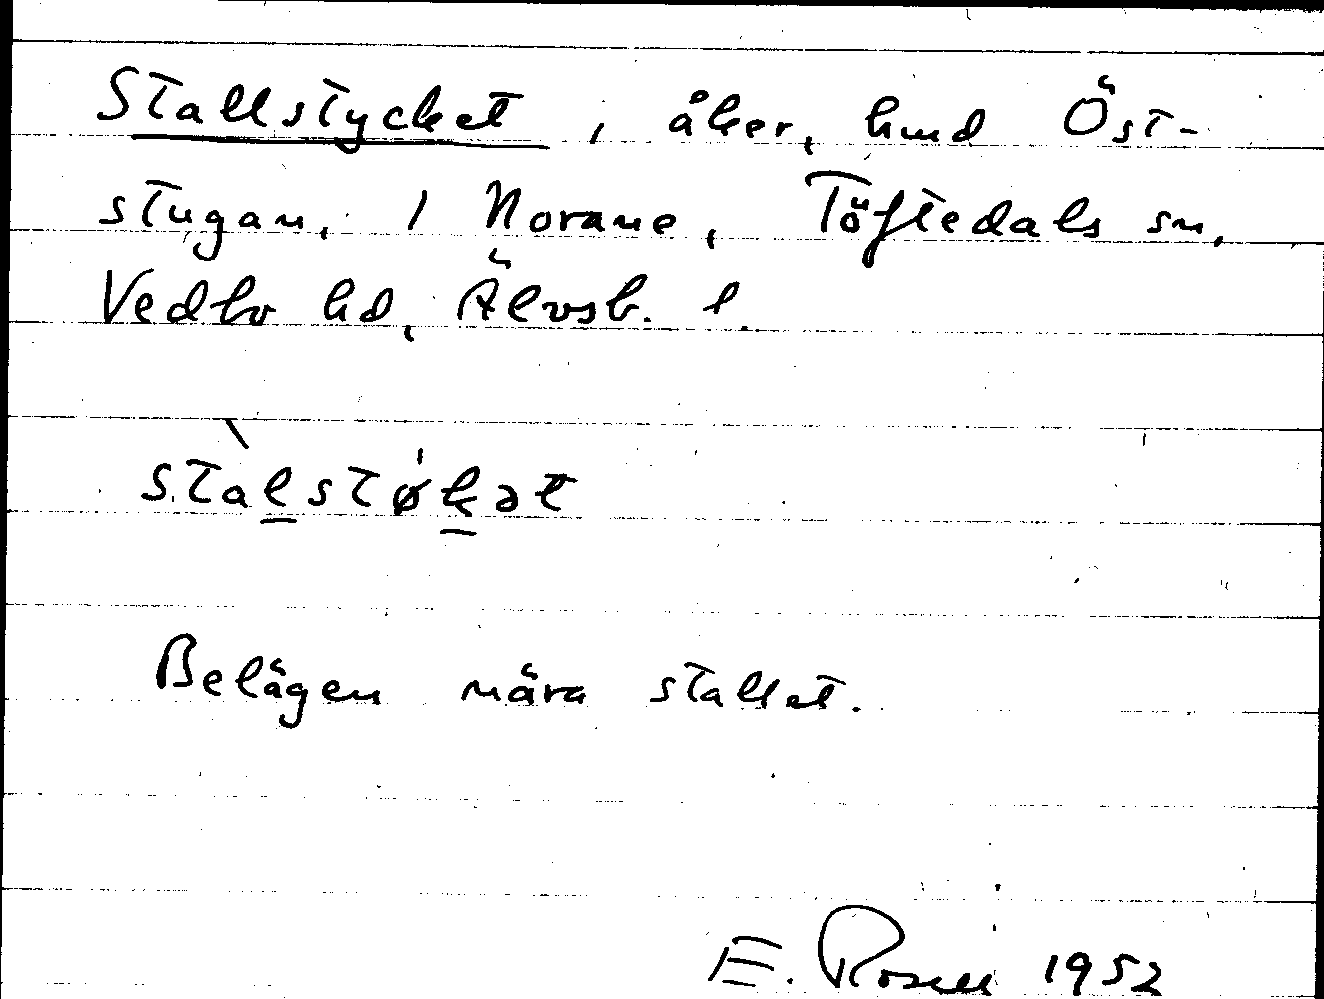 Stallstycket, åker, hmd Öst-
stugan, 1 Norane, Töftedals sn,
Vedbo hd, Älvsb. l.
stàlstøkət
Belägen nära stallet.
E. Rosell 1952